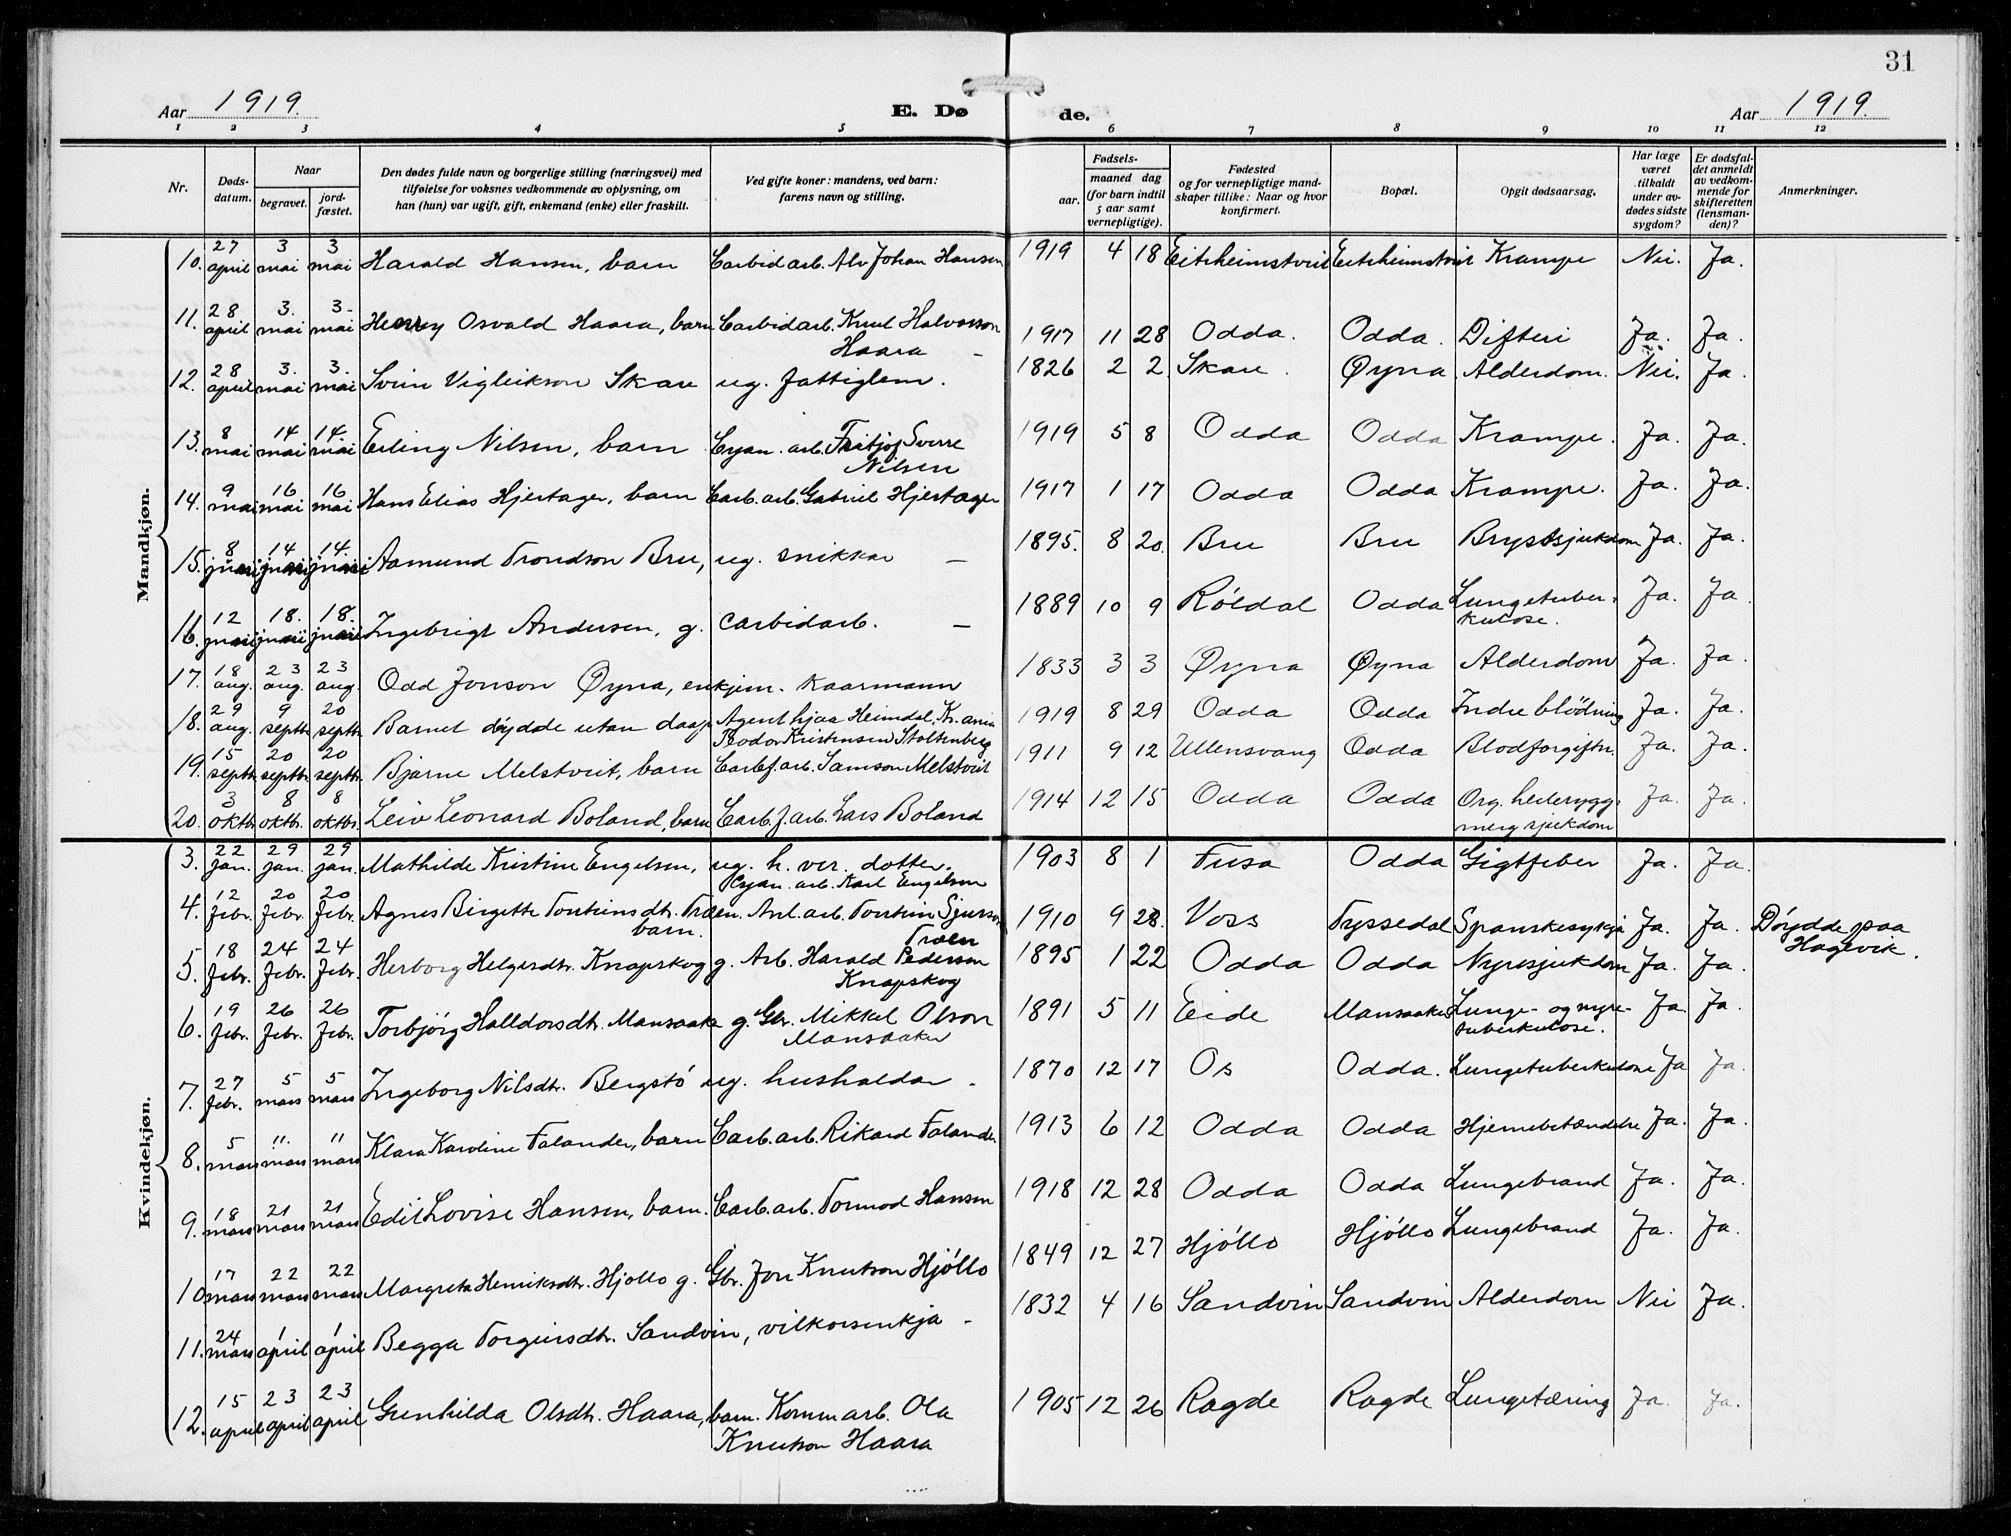 31
Aar 1919. E. Dø de. Aar 1919.
1 2 3 4 5 6 7 8 9 10 11 12
Nr. Døds-datum. Naar begravet. jord-fæstet. Den dødes fulde navn og borgerlige stilling (næringsvei) med tilføielse for voksnes vedkommende av oplysning, om han (hun) var ugift, gift, enkemand (enke) eller fraskilt. Ved gifte koner: mandens, ved barn: farens navn og stilling. Fødsels- aar. maaned dag (for barn indtil 5 aar samt vernepligtige). Fødested og for vernepligtige mand-skaper tillike: Naar og hvor konfirmert. Bopæl. Opgit dødsaarsag. Har læge været tilkaldt under av-dødes sidste sygdom? Er dødsfal-det anmeldt av vedkom-mende for skifteretten (lensman-den)? Anmerkninger.
Mandkjøn.
10. 27 april 3 mai 3 mai Harald Hansen, barn Carbid arb. Alv Johan Hansen 1919 4 18 Eitrheimstveit Eitrheimstveit Krampe Nei. Ja.
11. 28 april 3. mai 3. mai Henry Osvald Haara, barn Carbidarb. Knut Halvorson Haara 1917 11 28 Odda. Odda. Difteri Ja. Ja.
12. 28 april 3. mai 3. mai Svein Vigleikson Skare ug. fattiglem. 1826 2 2 Skare. Øyna Alderdom. Nei. Ja.
13. 8 mai 14 mai 14. mai Erling Nilsen, barn Cyan. arb. Fritjof Sverre Nilsen 1919 5 8 Odda Odda Krampe. Ja. Ja.
14. 9 mai 16 mai 16 mai Hans Elias Hjertager, barn Carb. arb. Gabriel Hjertager 1917 1 17 Odda Odda Krampe. Ja. Ja.
15. 8 juni 14 juni 14. juni Aamund Trondson Bru, ug. snikkar — 1895. 8 20. Bru Bru Brystsjukdom Ja. Ja.
16. 12 juni 18. juni 18. juni Ingebrigt Andersen, g. carbidarb. — 1889 10 9 Røldal Odda Lungetuber-kulose. Ja. Ja.
17. 18 aug. 23 aug. 23 aug. Odd Jonson Øyna, enkjem. kaarmann 1833 3 3 Øyna Øyna Alderdom Ja. Ja.
18. 29 aug. 9 septb. 20 septb. Barnet døydde utan daap Agent hjaa Heimdal, Kr.ania Teodor Kristensen Stoltenberg 1919 8 29 Odda Odda Indre blødning Ja. Ja.
19. 15 septb. 20 septb. 20 septb. Bjarne Melstveit, barn Carbf. arb. Samson Melstveit 1911 9 12 Ullensvang Odda Blodforgiftn. Ja. Ja.
20. 3 oktb. 8 oktb. 8 oktb. Leiv Leonard Boland, barn Carb. f. arb. Lars Boland 1914 12 15 Odda Odda Org. hederygg-merg sjukdom Ja. Ja.
Kvindekjøn.
3. 22 jan. 29 jan. 29 jan. Mathilde Kristine Engelsen, ug. h. ver. dotter. Cyan. arb. Karl Engelsen 1903 8 1 Fusa Odda Gigtfeber Ja. Ja.
4. 12 febr. 20 febr. 20 febr. Agnes Birgette Torsteinsdtr. Træen. barn. Anl. arb. Torstein Sjurson Træen 1910 9 28. Voss Tyssedal Spanskesykja Ja. Ja. Døydde paa Hagevik.
5. 18 febr. 24 febr. 24 febr. Herborg Helgesdtr. Knapskog g. Arb. Harald Pederson Knapskog 1895 1 22 Odda Odda Nyresjukdom Ja. Ja.
6. 19 febr. 26 febr. 26 febr. Torbjørg Halldorsdtr. Mansaaker g. Gbr. Mikkel Olson Mansaaker 1891 5 11 Eide Mansaaker Lunge- og nyre-tuberkulose. Ja. Ja.
7. 27 febr. 5 mars 5 mars Ingeborg Nilsdtr. Bergstø ug. hushaldar - 1870 12 17 Os Odda. Lungetuberkulose Ja Ja.
8. 5 mars 11. mars 11 mars Klara Karoline Falander, barn Carb. arb. Rikard Falander 1913 6 12 Odda Odda Hjernebetændelse Ja. Ja.
9. 18 mars 21 mars 21 mars Edit Lovise Hansen, barn. Carb. arb. Tormod Hansen 1918 12 28 Odda Odda Lungebrand Ja. Ja.
10 17 mars 22 mars 22 mars Margreta Henriksdtr. Hjøllo g. Gbr. Jon Knutson Hjøllo 1849 12 27 Hjøllo Hjøllo Lungebrand Ja. Ja.
11. 24 mars 1 april 1 april Begga Torgeirsdtr. Sandvin, vilkorsenkja - 1832 4 16 Sandvin Sandvin Alderdom Nei Ja.
12. 15 april 23 april 23 april Gunhilda Olsdtr. Haara, barn. Komm arb. Ola Knutson Haara 1905 12 26 Ragde Ragde Lungetæring Ja. Ja.